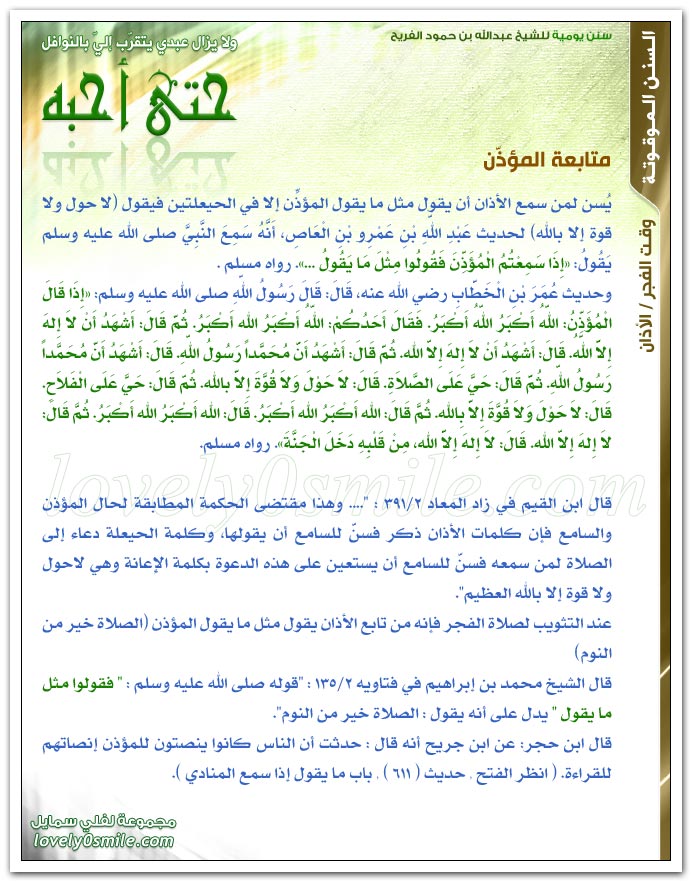 سنن يومية للشيخ عبدالله بن حمود الفريح
ولا يزال عبدي يتقرّب إليّ بالنوافل
حتى أحبه
السنن الموقوتة
وقت الفجر / الأذان
متابعة المؤذّن
يُسن لمن سمع الأذان أن يقول مثل ما يقول المؤذِّن إلا في الحيعلتين فيقول (لا حول ولا
قوة إلا بالله) لحديث عَبْدِ اللّهِ بْنِ عَمْرِو بْنِ الْعَاصِ، أَنَّهُ سَمِعَ النَّبِيَّ صلى الله عليه وسلم
يَقُولُ: «إِذَا سَمِعْتُمُ الْمُؤَذِّنَ فَقُولُوا مِثْلَ مَا يَقُولُ ...». رواه مسلم .
وحديث عُمَرَ بْنِ الْخَطَّابِ رضي الله عنه، قَالَ: قَالَ رَسُولُ اللّهِ صلى الله عليه وسلم: «إِذَا قَالَ
الْمُؤَذِّنُ: اللّهُ أَكْبَرُ اللّهُ أَكْبَرُ. فَقَالَ أَحَدُكُمْ: اللّهُ أَكْبَرُ اللّهُ أَكْبَرُ. ثُمَّ قَالَ: أَشْهَدُ أَنْ لاَ إِلهَ
إِلاَّ اللّهُ. قَالَ: أَشْهَدُ أَنْ لاَ إِلهَ إِلاَّ اللّهُ. ثُمَّ قَالَ: أَشْهَدُ أَنَّ مُحَمَّداً رَسُولُ اللّهِ. قَالَ: أَشْهَدُ أَنَّ مُحَمَّداً
رَسُولُ اللّهِ. ثُمَّ قَالَ: حَيَّ عَلَى الصَّلاَةِ. قَالَ: لاَ حَوْلَ وَلاَ قُوَّةَ إِلاَّ بِاللّهِ. ثُمَّ قَالَ: حَيَّ عَلَى الْفَلاَحِ.
قَالَ: لاَ حَوْلَ وَلاَ قُوَّةَ إِلاَّ بِاللّهِ. ثُمَّ قَالَ: اللّهُ أَكْبَرُ اللّهُ أَكْبَرُ. قَالَ: اللّهُ أَكْبَرُ اللّهُ أَكْبَرُ. ثُمَّ قَالَ:
لاَ إِلهَ إِلاَّ اللّهُ. قَالَ: لاَ إِلهَ إِلاَّ اللّهُ، مِنْ قَلْبِهِ دَخَلَ الْجَنَّةَ». رواه مسلم.
lovely0smile.com
قال ابن القيم في زاد المعاد ٣٩١/٢ : ".... وهذا مقتضى الحكمة المطابقة لحال المؤذن
والسامع فإن كلمات الأذان ذكر فسنّ للسامع أن يقولها، وكلمة الحيعلة دعاء إلى
الصلاة لمن سمعه فسنّ للسامع أن يستعين على هذه الدعوة بكلمة الإعانة وهي لاحول
ولا قوة إلا بالله العظيم".
عند التثويب لصلاة الفجر فإنه من تابع الأذان يقول مثل ما يقول المؤذن (الصلاة خير من
النوم)
قال الشيخ محمد بن إبراهيم في فتاويه ١٣٥/٢ : "قوله صلى الله عليه وسلم : " فقولوا مثل
ما يقول " يدل على أنه يقول : الصلاة خير من النوم".
قال ابن حجر: عن ابن جريج أنه قال : حدثت أن الناس كانوا ينصتون للمؤذن إنصاتهم
للقراءة. ( انظر الفتح , حديث ( ٦١١ ) , باب ما يقول إذا سمع المنادي ).
مجموعة لفلي سمايل
lovely0smile.com